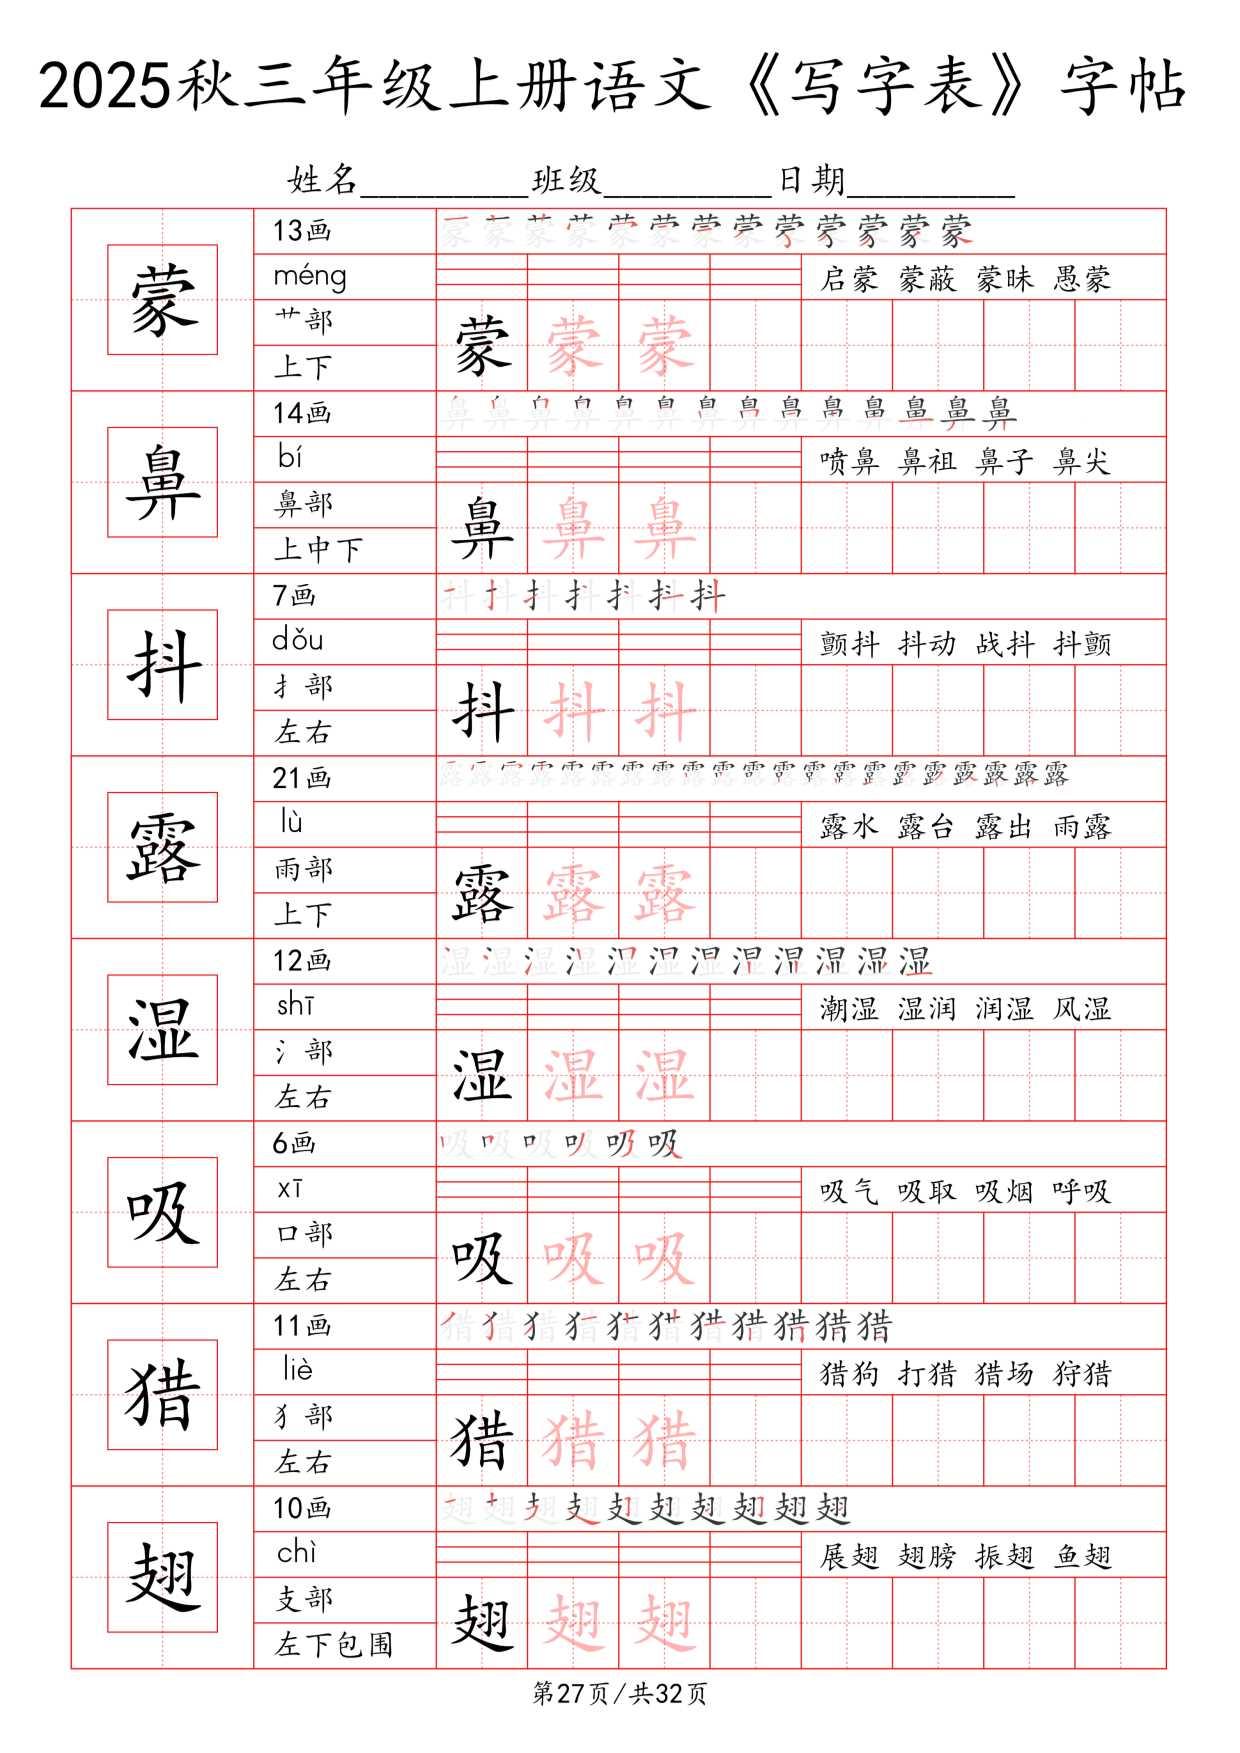 2025秋三年级上册语文《写字表》字帖
姓名_________班级_________日期_________
蒙
13画
蒙 蒙 蒙 蒙 蒙 蒙 蒙 蒙 蒙 蒙 蒙 蒙 蒙
méng
启蒙 蒙蔽 蒙昧 愚蒙
艹部
上下
蒙 蒙 蒙
鼻
14画
鼻 鼻 鼻 鼻 鼻 鼻 鼻 鼻 鼻 鼻 鼻 鼻 鼻 鼻
bí
喷鼻 鼻祖 鼻子 鼻尖
鼻部
上中下
鼻 鼻 鼻
抖
7画
抖 抖 抖 抖 抖 抖 抖
dǒu
颤抖 抖动 战抖 抖颤
扌部
左右
抖 抖 抖
露
21画
露 露 露 露 露 露 露 露 露 露 露 露 露 露 露 露 露 露 露 露 露
lù
露水 露台 露出 雨露
雨部
上下
露 露 露
湿
12画
湿 湿 湿 湿 湿 湿 湿 湿 湿 湿 湿 湿
shī
潮湿 湿润 润湿 风湿
氵部
左右
湿 湿 湿
吸
6画
吸 吸 吸 吸 吸 吸
xī
吸气 吸取 吸烟 呼吸
口部
左右
吸 吸 吸
猎
11画
猎 猎 猎 猎 猎 猎 猎 猎 猎 猎 猎
liè
猎狗 打猎 猎场 狩猎
犭部
左右
猎 猎 猎
翅
10画
翅 翅 翅 翅 翅 翅 翅 翅 翅 翅
chì
展翅 翅膀 振翅 鱼翅
支部
左下包围
翅 翅 翅
第27页/共32页